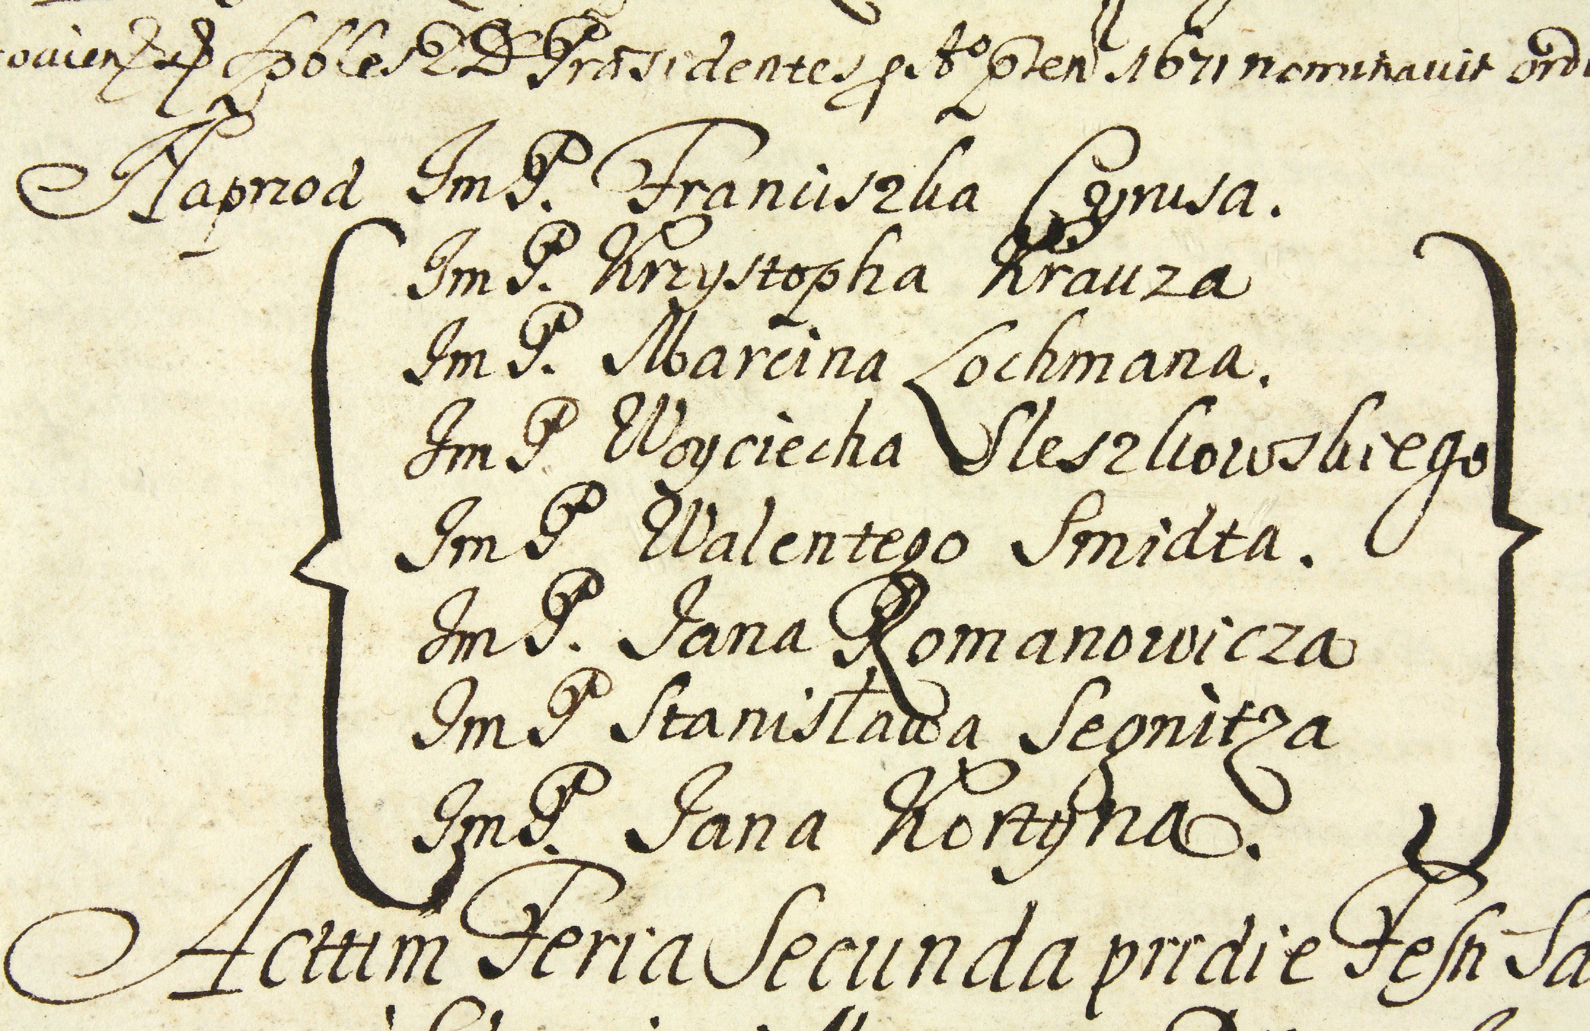 Præsidentes 1671 nominavit
Naprzod ImP. Franciszka Cyrusa.
ImP. Krzystopha Krauza
ImP. Marcina Lochmana.
ImP Woyciecha Sleszkowskiego
ImP Walentego Smidta.
ImP. Jana Romanowicza
ImP Stanisława Segnitza
ImP. Jana Kortyna.
Actum Feria Secunda pridie Festi Sa